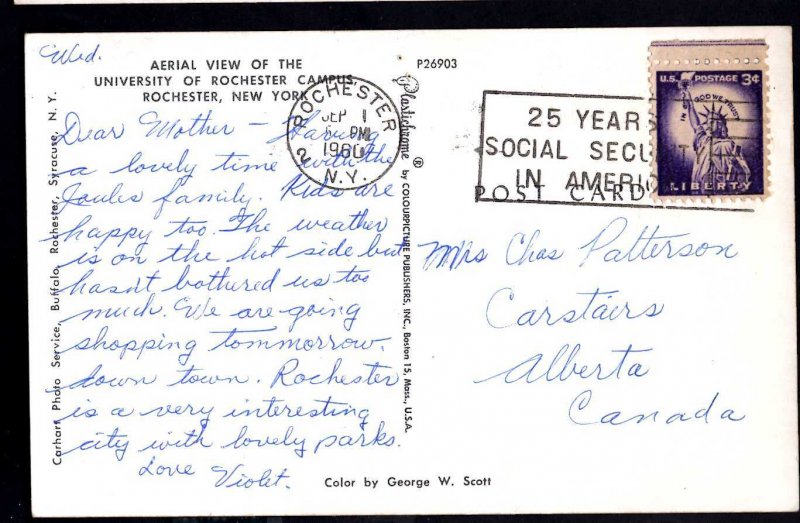 Wed.
AERIAL VIEW OF THE
UNIVERSITY OF ROCHESTER CAMPUS,
ROCHESTER, NEW YORK
P26903
Dear Mother – Having
a lovely time with the
Joules family. Kids are
happy too. The weather
is on the hot side but
hasn't bothered us too
much. We are going
shopping tommorrow.
down town. Rochester
is a very interesting
city with lovely parks.
Love
Violet.
Carhart Photo Service, Buffalo, Rochester, Syracuse, N. Y.
Color by George W. Scott
Plastichrome ® by COLOURPICTURE PUBLISHERS, INC., Boston 15, Mass., U.S.A.
ROCHESTER
2
SEP 1
PM
1960
N.Y.
25 YEAR
SOCIAL SECU
IN AMERIC
POST CARD
U.S. POSTAGE 3¢
IN GOD WE TRUST
LIBERTY
Mrs Chas Patterson
Carstairs
Alberta
Canada